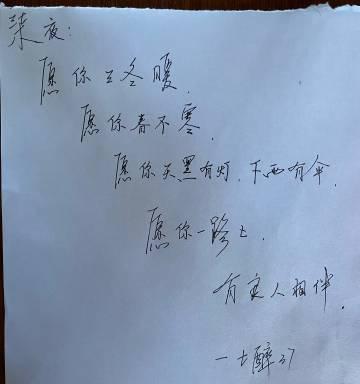 夜:
愿你三冬暖,
愿你春不寒.
愿你天黑有灯,下雨有伞.
愿你一路上,
有良人相伴.
一七醉